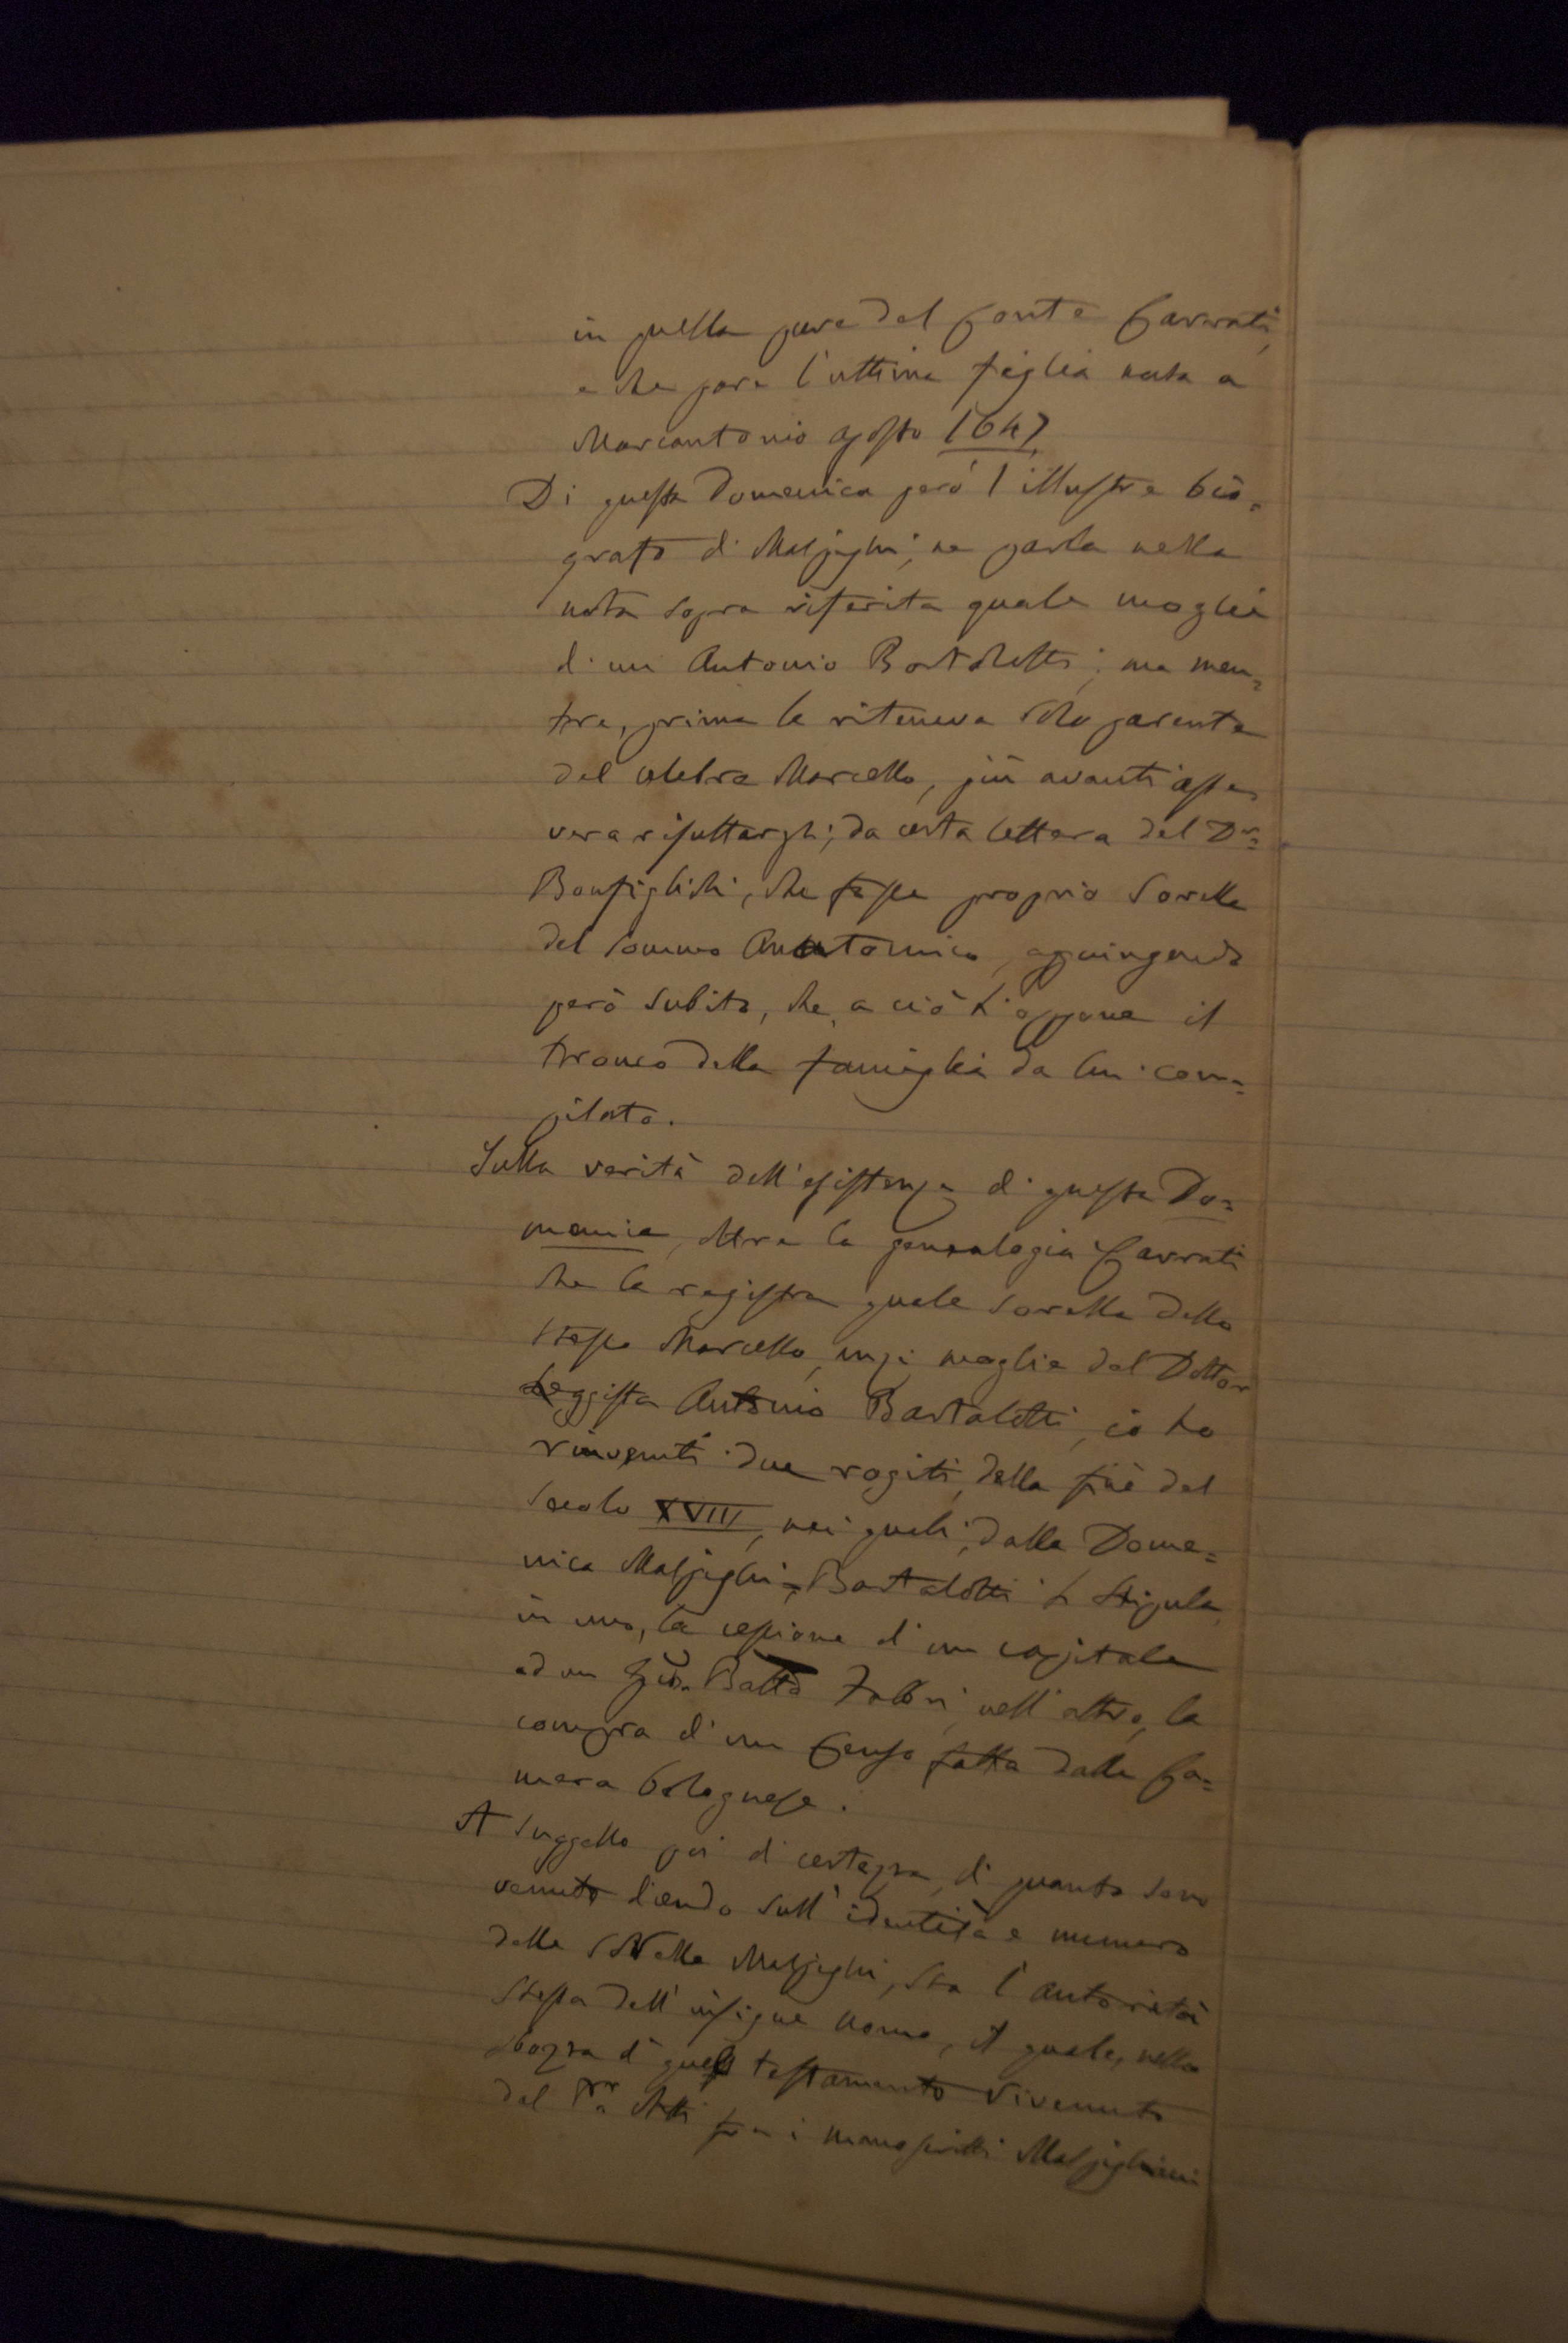 in quella pure del Conte Carrati,
e che pare l'ultima figlia nata a
Marcantonio agosto 1647
Di questa Domenica però l'illustre bio=
grafo di Malpighi, ne parla nella
nota sopra riferita quale moglie
di un Antonio Bortolotti; ma men=
tre, prima la riteneva solo parente
del celebre Marcello, più avanti asse
vera risultargli, da certa lettera del Dr.
Bonfiglioli, che fosse proprio sorella
del sommo Anatomico, aggiungendo
però subito, che a ciò s'oppone il
tronco della famiglia da lui com=
pilato.
Sulla verità dell'esistenza di questa Do=
menica, oltre la genealogia Carrati
che la registra quale sorella dello
stesso Marcello, anzi moglie del Dottor
Leggista Antonio Bartalotti, io ho
rinvenuti due rogiti, della fine del
secolo XVII, nei quali, dalla Dome=
nica Malpighi=Bartalotti si stipula,
in uno, la cessione di un capitale
ad un Gio. Batta Fabbri, nell'altro, la
compra d'un Censo fatta dalla Ca=
mera bolognese.
A suggello poi di certezza, di quanto sono
venuto dicendo sull'identità e numero
delle sorelle Malpighi, sta l'autorità
stessa dell'insigne uomo, il quale, nella
bozza di quel testamento rivenuto
dal Atti fra i manoscritti Malpighiani